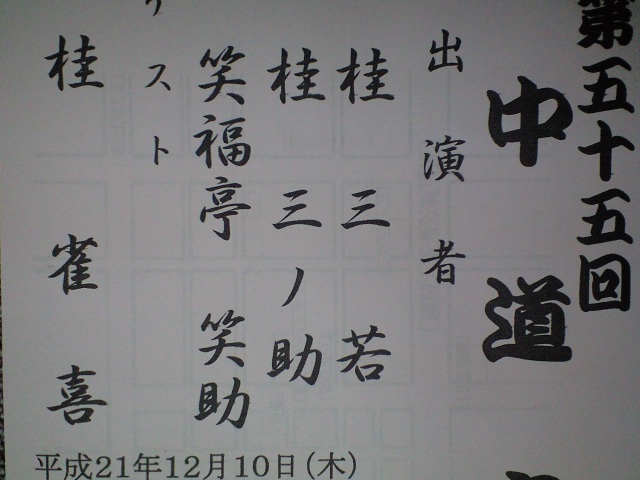 第五十五回
中道
出演者
桂三若
桂三ノ助
笑福亭笑助
スト
桂雀喜
平成21年12月10日(木)